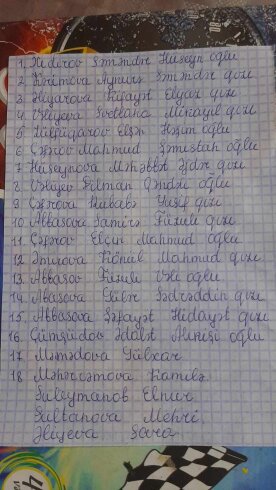 1. Xıdırov Səməndər Hüseyn oğlu
2. Kərimova Aynurə Səməndər qızı
3. Heydərova Kifayət Elyar qızı
4. Əliyeva Svetlana Mikayıl qızı
5. Zülfüqarov Elşən Həşim oğlu
6. Cəfərov Mahmud Şməstan oğlu
7. Hüseynova Məhəbbət Əjdər qızı
8. Əliyev Dilman Qəmdər oğlu
9. Cəfərova Rübabə Yusif qızı
10. Abbasova Samirə Füzuli qızı
11. Cəfərov Elçin Mahmud oğlu
12. Əmirova Könül Mahmud qızı
13. Abbasov Füzuli Vəli oğlu
14. Abasova Gülər Sədrəddin qızı
15. Abbasova Şəfayət Hidayət qızı
16. Gümşüdov Ədalət Alxışı oğlu
17 Məmədova Gülxar
18 Məhərrəmova Kəmalə
Süleymanov Elnur
Sultanova Mehri
Əliyeva Sara